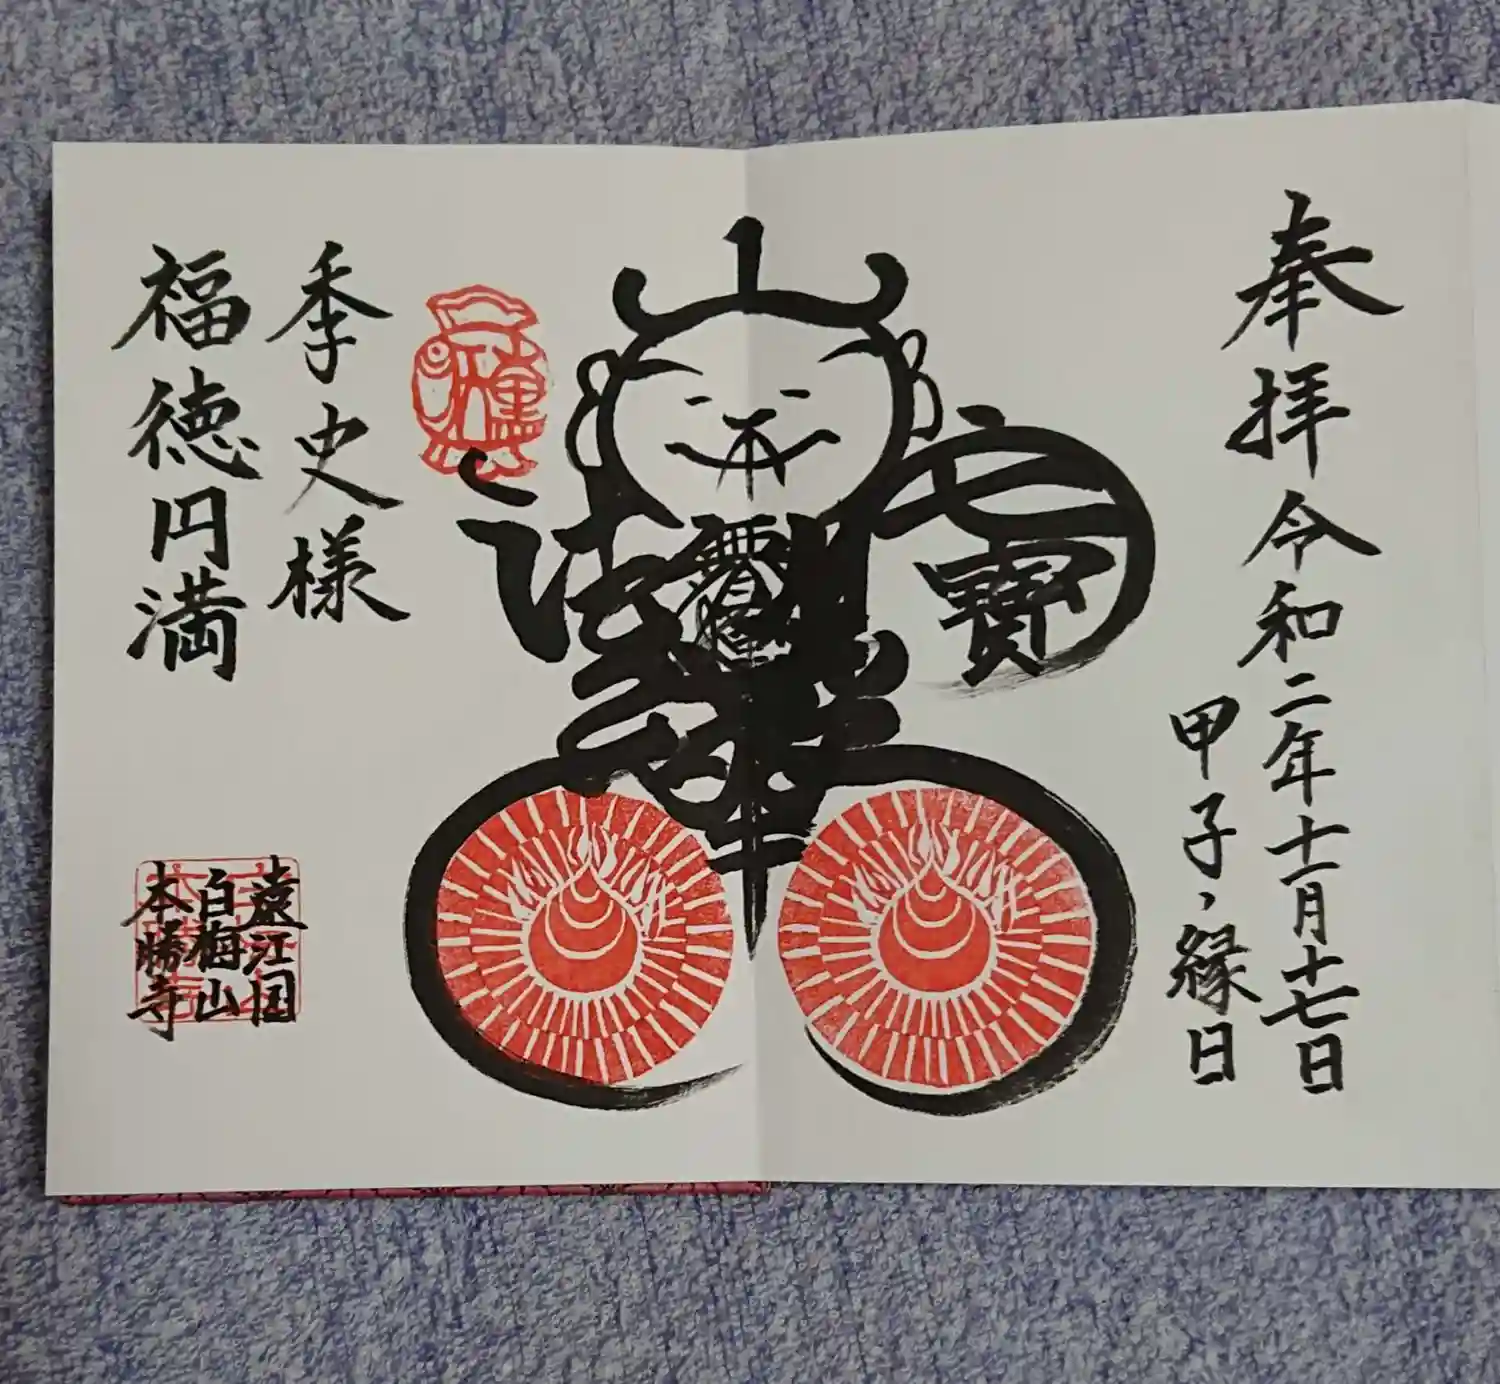 奉拝 令和二年十一月十七日
甲子、縁日
七
寶
季史様
福徳円満
遠江国
白梅山
本勝寺